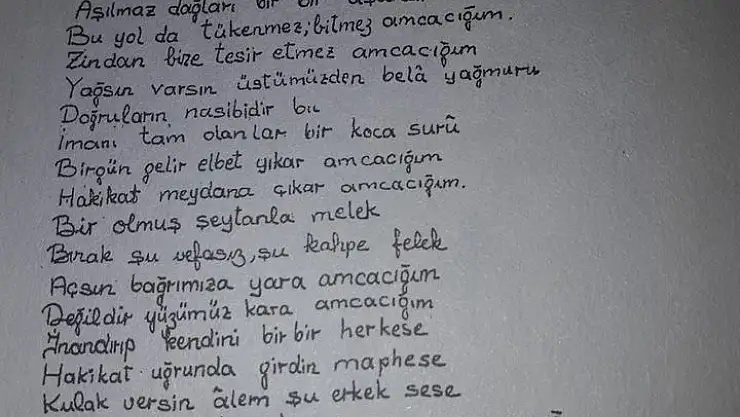 Aşılmaz dağları bir bir
Bu yol da tükenmez, bitmez amcacığım.
Zindan bize tesir etmez amcacığım
Yağsın varsın üstümüzden belâ yağmuru
Doğruların nasibidir bu
İmanı tam olanlar bir koca surû
Birgün gelir elbet yıkar amcacığım
Hakikat meydana çıkar amcacığım.
Bir olmuş şeytanla melek
Bırak şu vefasız, şu kahpe felek
Açsın bağrımıza yara amcacığım
Değildir yüzümüz kara amcacığım
İnandırıp kendini bir bir herkese
Hakikat uğrunda girdin maphese
Kulak versin âlem şu erkek sese